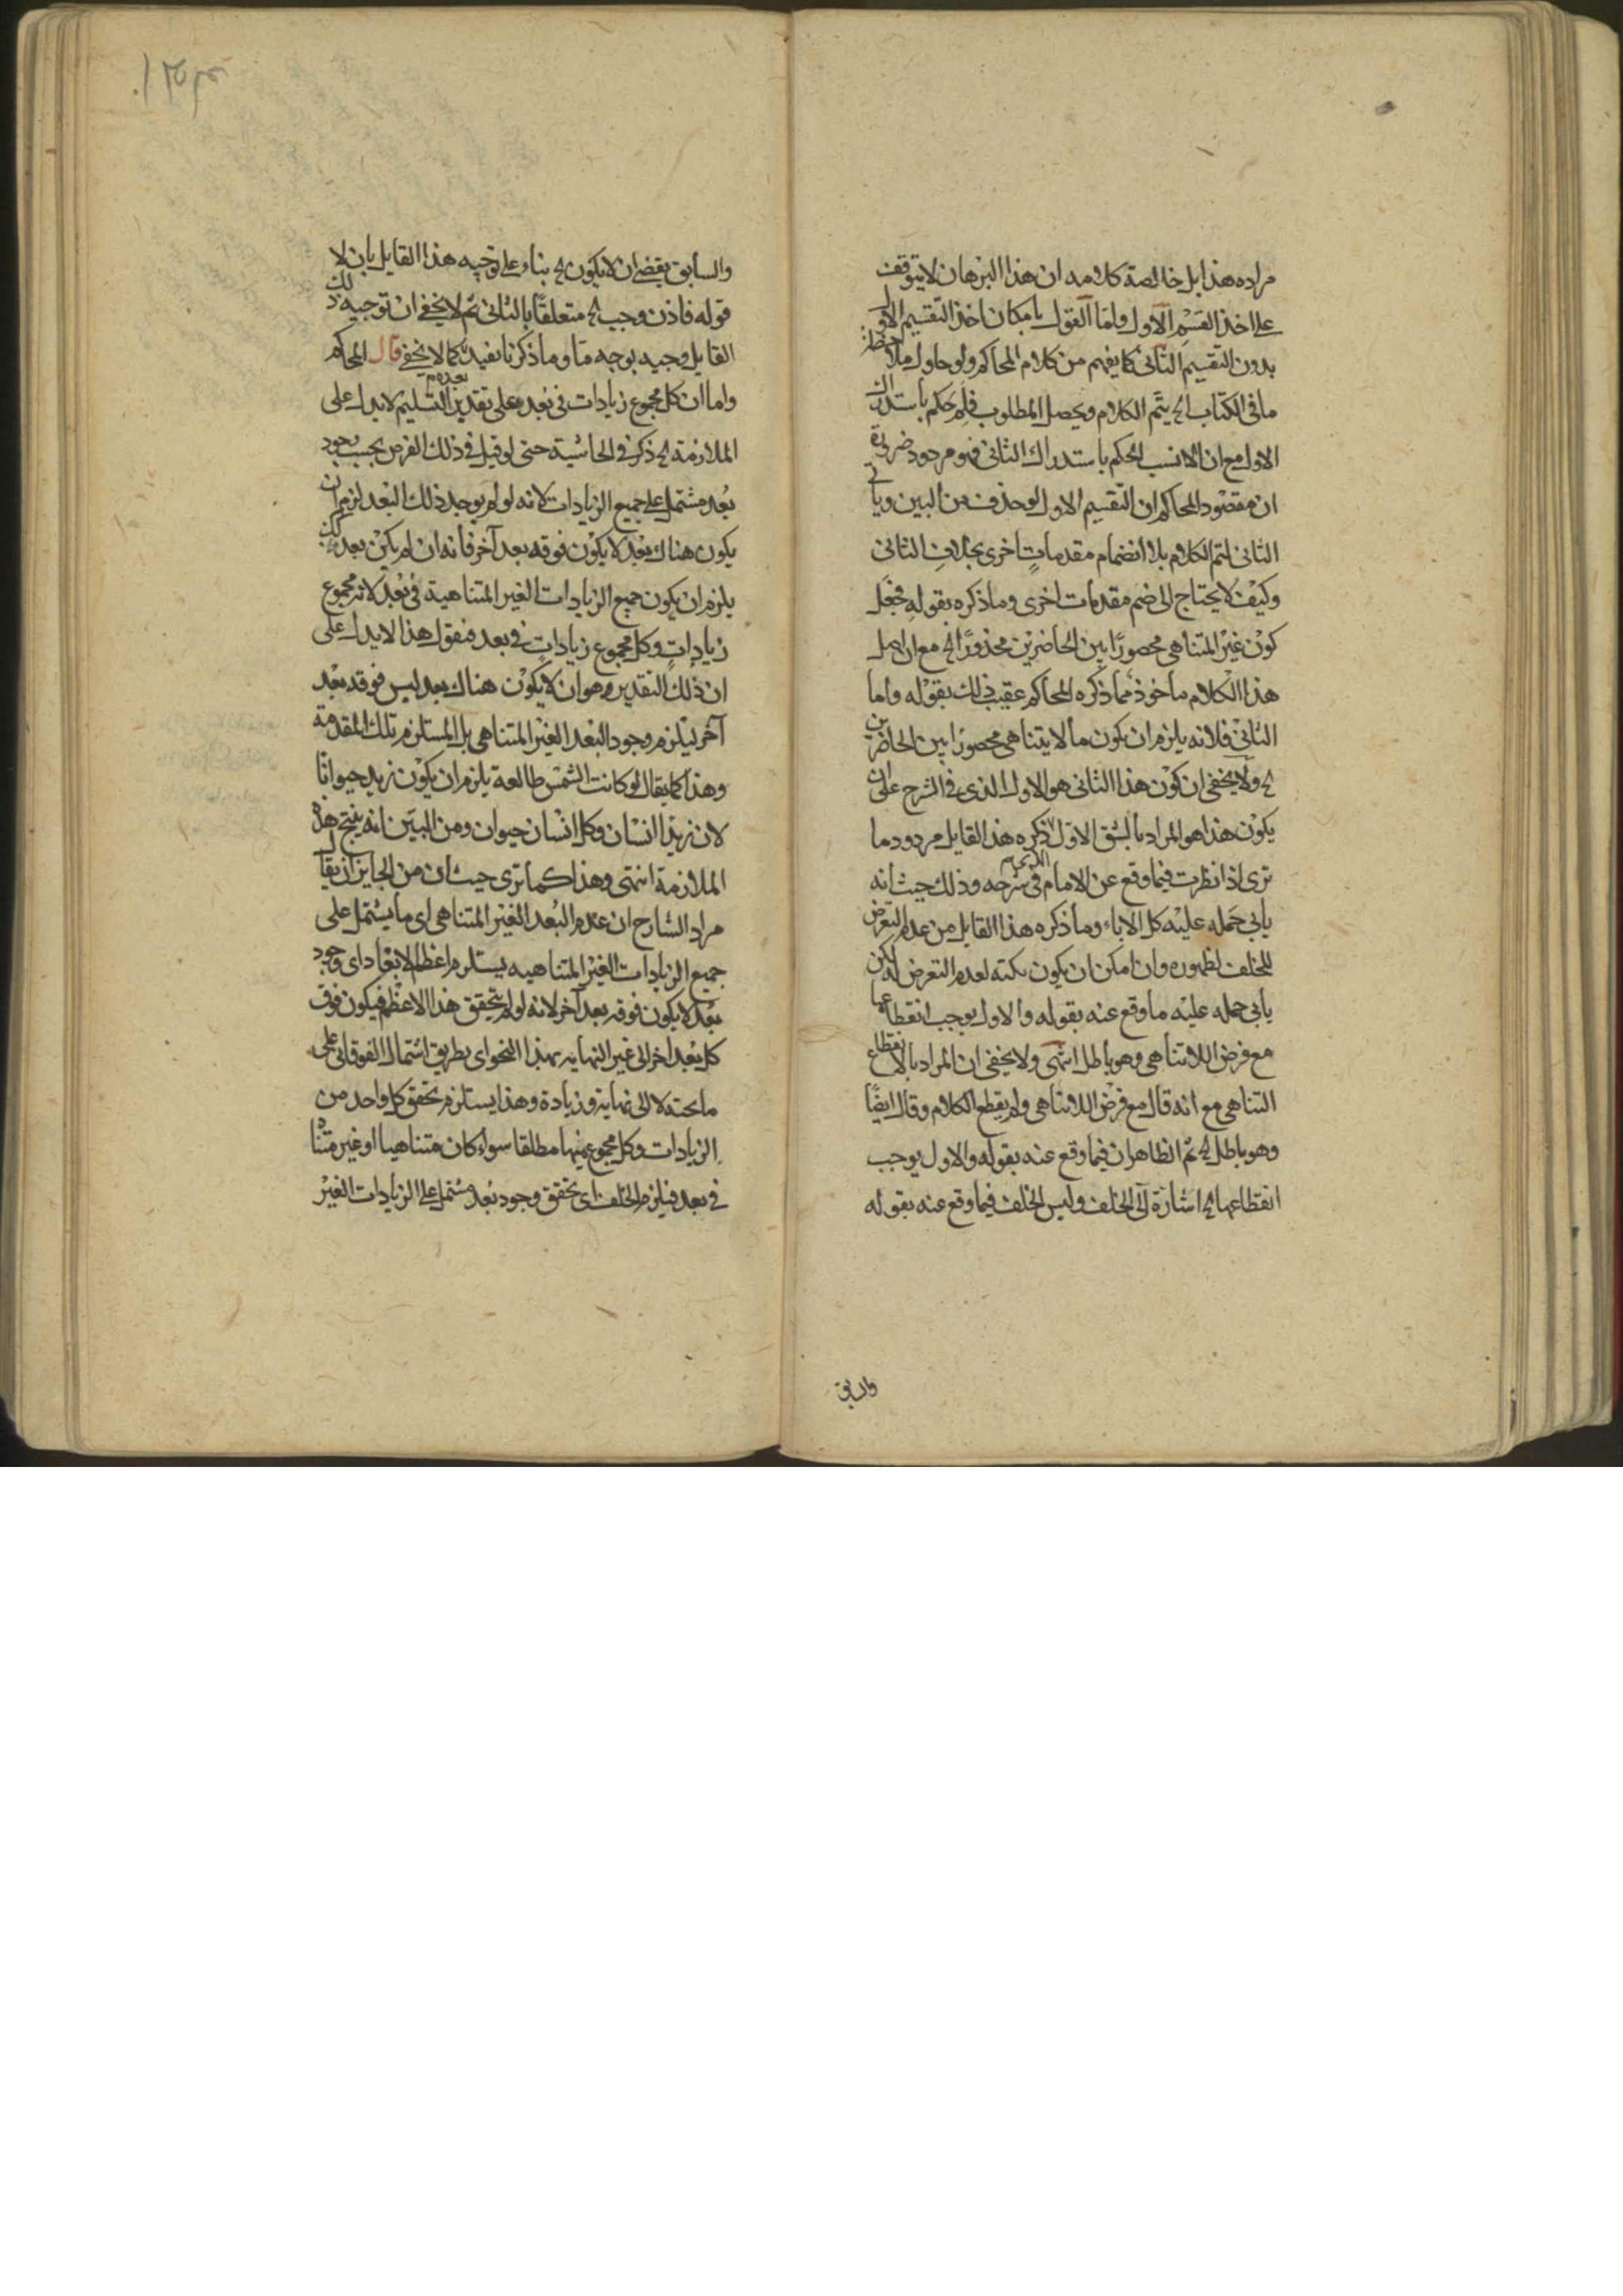 مراده هذا بل خالصة كلامه ان هذا البرهان لا يتوقف
على اخذ القسم الاول واما القول بامكان اخذ التقسيم الاول
بدون التقسيم الثانى كما يفهم من كلام المحاكم ولو حاول ملاحظة
ما فى الكتاب الخ يتم الكلام ويحصل المطلوب فلم حكم باستدراك
الاول مع ان الانسب الحكم باستدراك الثانى فهو مردود ضرورة
ان مقصود المحاكم ان التقسيم الاول لو حذف من البين ويأتى
الثانى لتم الكلام بلا انضمام مقدمات اخرى بخلاف الثانى
وكيف لا يحتاج الى ضم مقدمات اخرى وما ذكره بقوله فجعل
كون غير المتناهى محصورًا بين الحاضرين محذورًا الخ مع ان اصل
هذا الكلام مأخوذ مما ذكره المحاكم عقيب ذلك بقوله واما
الثانى فلانه يلزم ان يكون ما لا يتناهى محصورا بين الحاضرين
الخ ولا يخفى ان كون هذا الثانى هو الاول الذى فى الشرح على ان
يكون هذا هو المراد بالشق الاول ذكره هذا القايل مردود ما
ترى اذا نظرت فيما وقع عن الامام فى شرحه وذلك حيث انه
يأبى حمله عليه كل الاباء وما ذكره هذا القايل من عدم التعرض
للخلف لظهوره وان امكن ان يكون نكتة لعدم التعرض له لكن
يأبى حمله عليه ما وقع عنه بقوله والاول يوجب انقطاعها
مع فرض اللاتناهى وهو باطل انتهى ولا يخفى ان المراد بالانقطاع
التناهى مع انه قال مع فرض اللاتناهى ولم يقطع الكلام وقال ايضًا
وهو باطل الخ ثم الظاهر ان فيما وقع عنه بقوله والاول يوجب
انقطاعها الخ اشارة الى الخلف وليس الخلف فيما وقع عنه بقوله
والسابق
والسابق يقتضى ان لا يكون الخ بناء على توجيه هذا القايل بان لا
قوله فاذن وجب الخ متعلقًا بالثانى ثم لا يخفى ان توجيه ذلك
القايل وجيه بوجه ما وما ذكرنا يفيد كما لا يخفى قال المحاكم
واما ان كل مجموع زيادات فى بُعد وعلى تقدير التسليم لا يدل على
الملازمة الخ ذكر فى الحاشية حتى لو قيل فى ذلك الفرض يجب وجود
بُعد مشتمل على جميع الزيادات لانه لو لم يوجد ذلك البعد لزم ان
يكون هناك بُعد لا يكون فوقه بعد آخر فانه ان لم يكن بعد كذلك
يلزم ان يكون جميع الزيادات الغير المتناهية فى بُعد لانه مجموع
زيادات وكل مجموع زيادات فى بعد فنقول هذا لا يدل على
ان ذلك التقدير وهو ان لا يكون هناك بعد ليس فوقه بعد
آخر يستلزم وجود البعد الغير المتناهى بل المستلزم تلك المقدمة
وهذا كما يقال لو كانت الشمس طالعة يلزم ان يكون زيد حيوانًا
لان زيدًا انسان وكل انسان حيوان ومن البين انه ينتج هذه
الملازمة انتهى وهذا كما ترى حيث ان من الجايز ان يقال
مراد الشارح ان عدم البُعد الغير المتناهى اى ما يشتمل على
جميع الزيادات الغير المتناهيه يستلزم اعظم الابعاد اى وجود
بُعد لا يكون فوقه بعد آخر لانه لو لم يتحقق هذا الاعظم فيكون فوق
كل بُعد اخر الى غير النهايه بهذا النحو اى بطريق اشتمال الفوقانى على
ما تحته لا الى نهاية وزيادة وهذا يستلزم تحقق كل واحد من
الزيادات وكل مجموع منها مطلقا سواء كان متناهيا او غير متناه
فى بعد فيلزم الخلف اى تحقق وجود بُعد مشتمل على الزيادات الغير